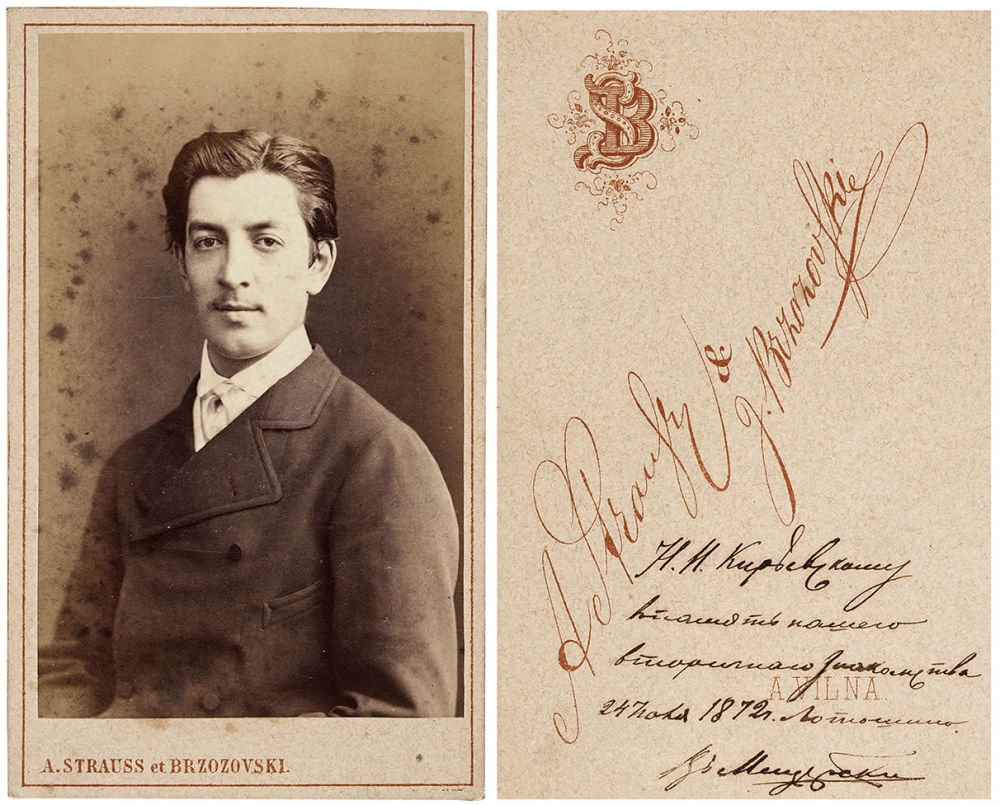 A. STRAUSS et BRZOZOVSKI.
SB
A Strauss &
J. Brzozovski
Н. И. Кирѣевскому
въ память нашего
вторичнаго знакомства
A. VILNA.
24 Ноября 1872 г. Лотошино.
Кн Мещерский